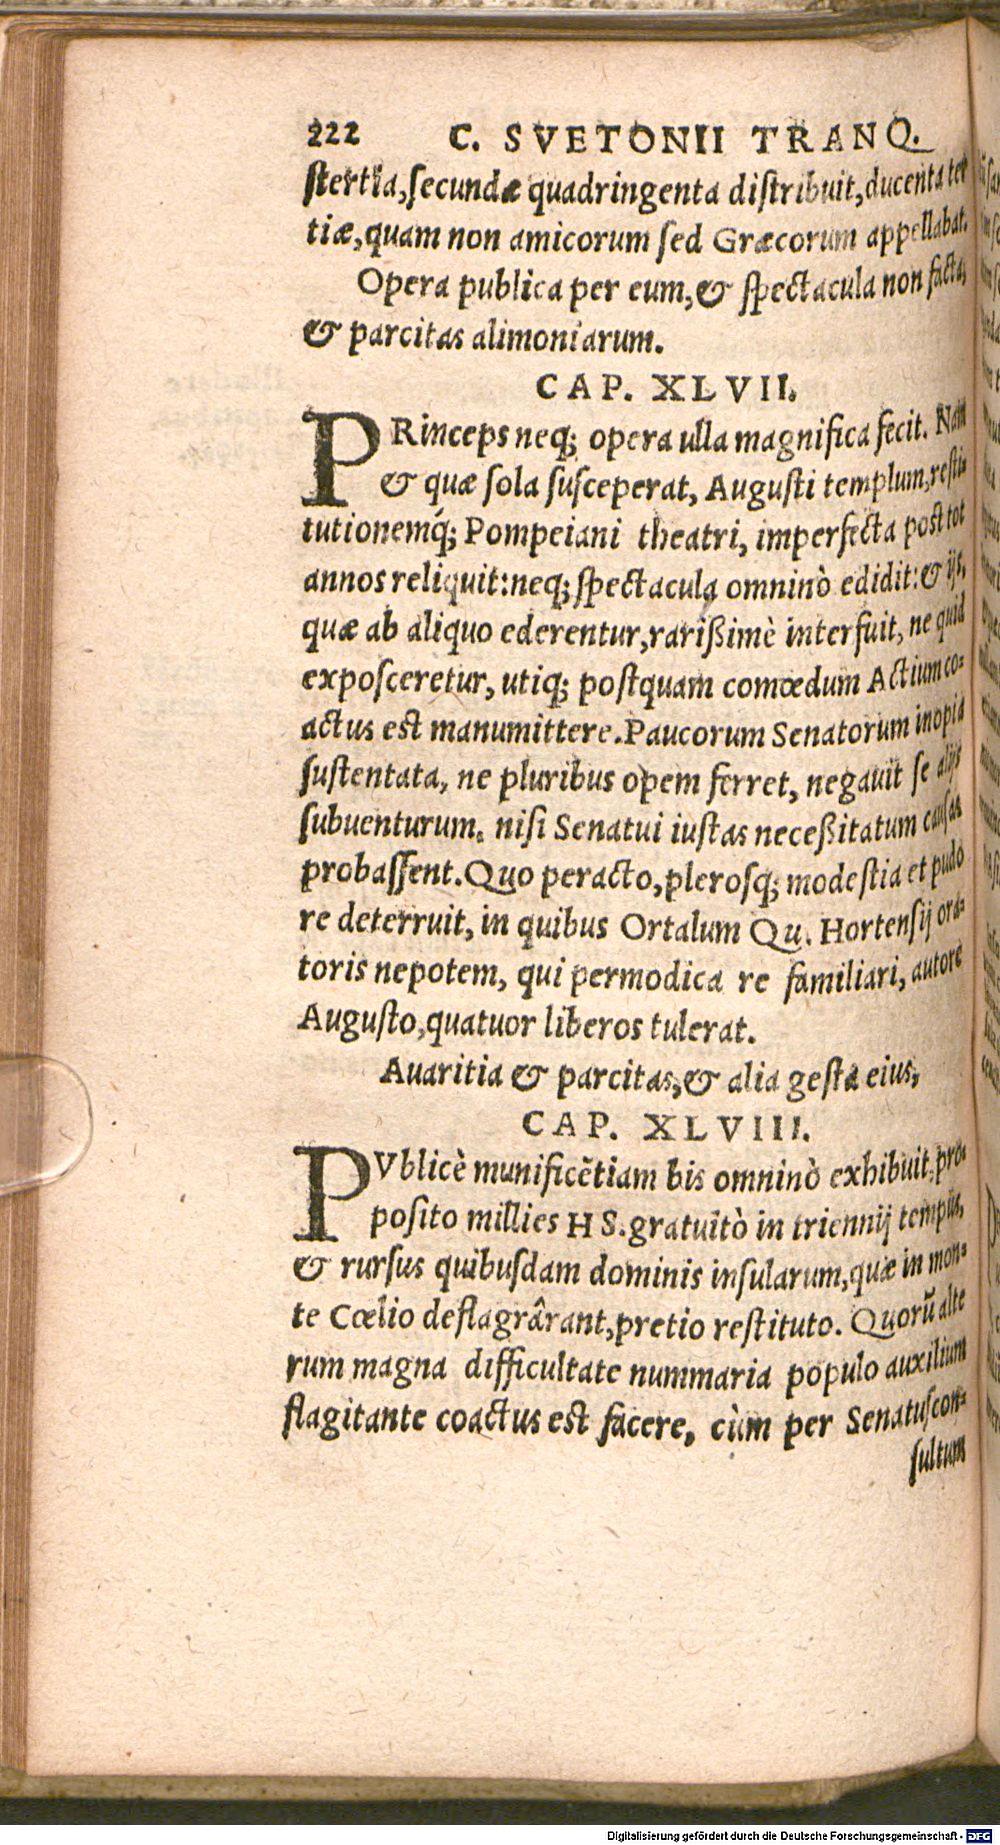 222 C. SVETONII TRANQ.
stertia, secundæ quadringenta distribuit, ducenta ter
tiæ, quam non amicorum sed Græcorum appellabat.
Opera publica per eum, & spectacula non facta,
& parcitas alimoniarum.
CAP. XLVII.
PRinceps neq; opera ulla magnifica fecit. Nam
& quæ sola susceperat, Augusti templum, resti-
tutionemq́; Pompeiani theatri, imperfecta post tot
annos reliquit: neq; spectacula omninò edidit: & ijs,
quæ ab aliquo ederentur, rarißimè interfuit, ne quid
exposceretur, utiq; postquam comœdum Actium co-
actus est manumittere. Paucorum Senatorum inopia
sustentata, ne pluribus opem ferret, negauit se alijs
subuenturum. nisi Senatui iustas neceßitatum causas
probassent. Quo peracto, plerosq; modestia et pudo
re deterruit, in quibus Ortalum Qu. Hortensij ora-
toris nepotem, qui permodica re familiari, autore
Augusto, quatuor liberos tulerat.
Auaritia & parcitas, & alia gesta eius,
CAP. XLVIII.
PVblicè munificẽtiam bis omninò exhibuit, pro-
posito millies HS. gratuitò in triennij tempus,
& rursus quibusdam dominis insularum, quæ in mon-
te Cœlio deflagrârant, pretio restituto. Quorũ alte
rum magna difficultate nummaria populo auxilium
flagitante coactus est facere, cùm per Senatuscon-
sultum
Digitalisierung gefördert durch die Deutsche Forschungsgemeinschaft - DFG